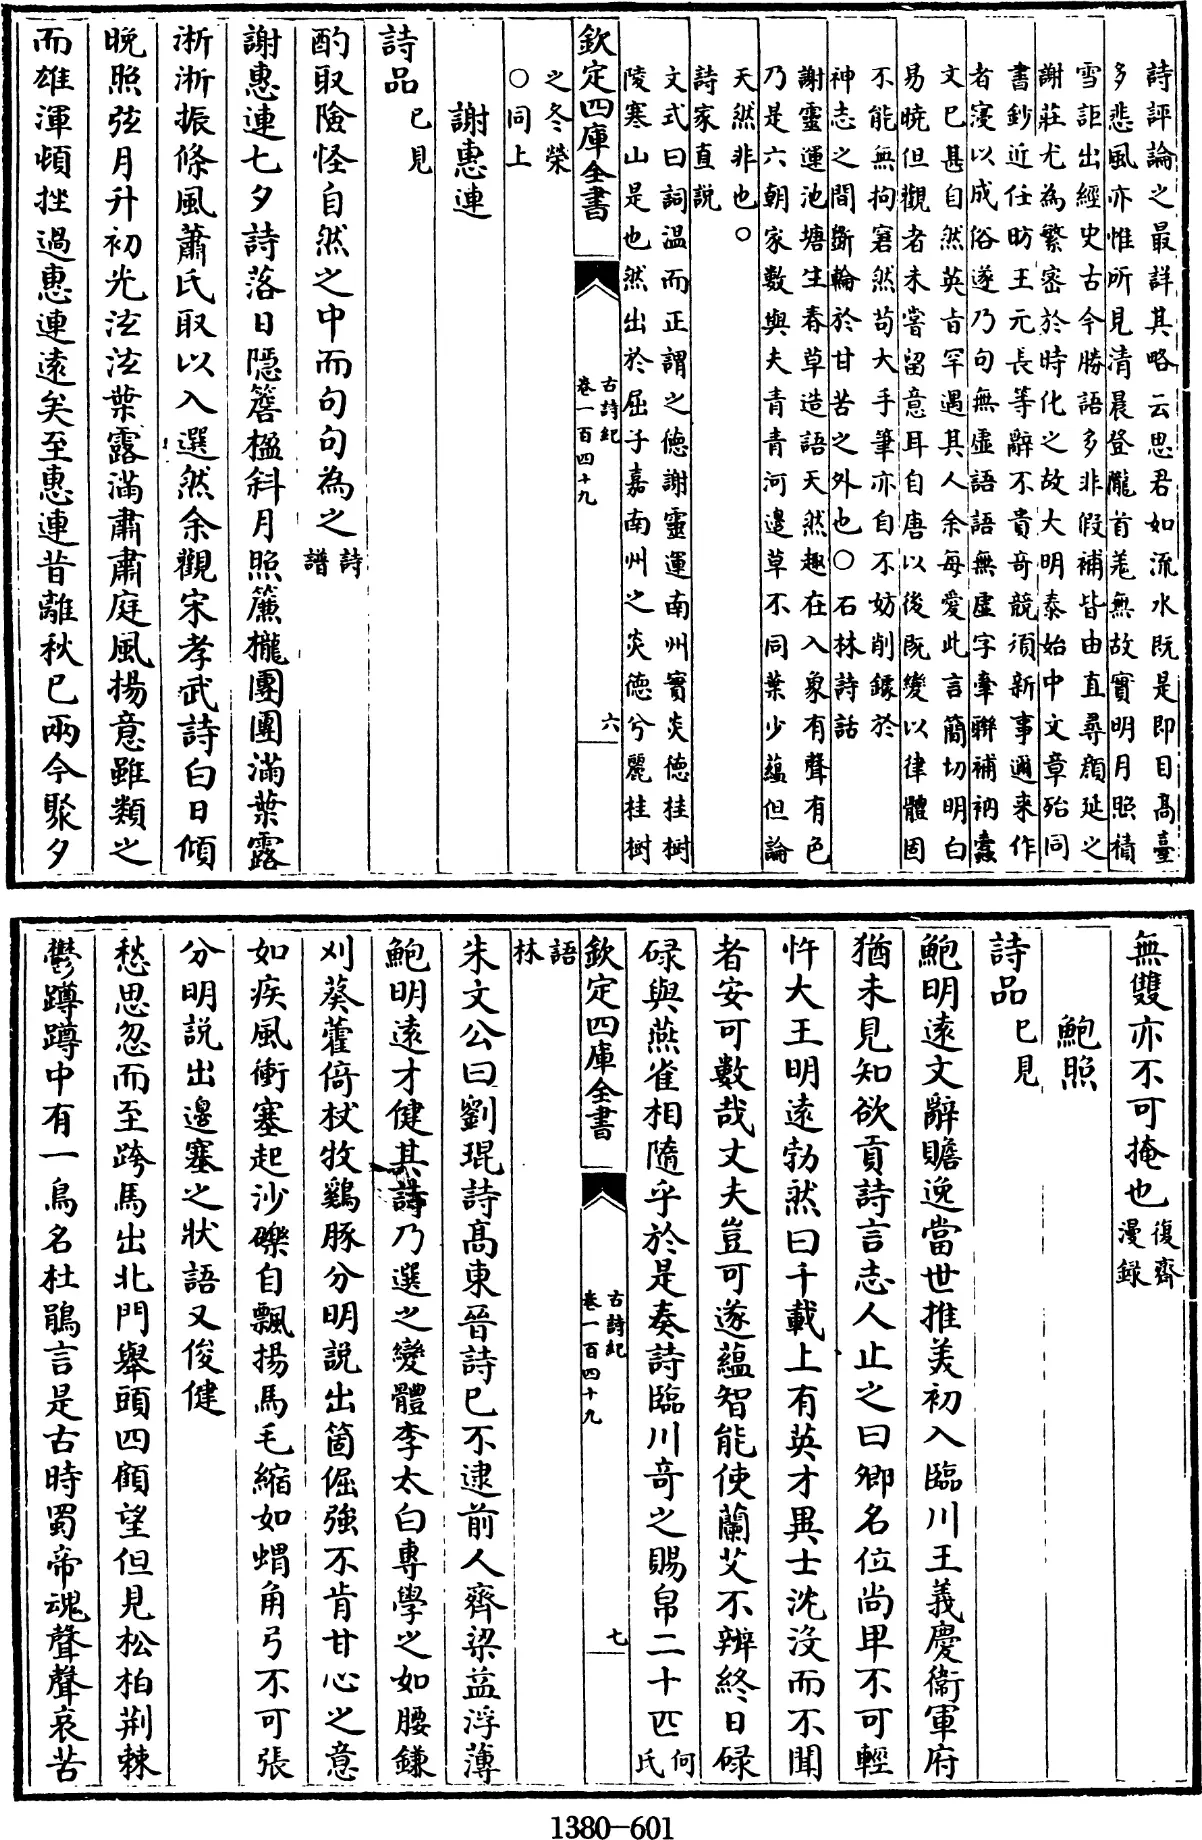 詩評論之最詳其略云思君如流水既是即目高臺
多悲風亦惟所見清晨登隴首羌無故實明月照積
雪詎出經史古今勝語多非假補皆由直尋顔延之
謝莊尤為繁密於時化之故大明泰始中文章殆同
書鈔近任昉王元長等辭不貴奇競須新事邇来作
者寖以成俗遂乃句無虛語語無虛字牽聯補衲蠹
文已甚自然英旨罕遇其人余每愛此言簡切明白
易曉但觀者未嘗留意耳自唐以後既變以律體固
不能無拘窘然苟大手筆亦自不妨削鐻於
神志之間斲輪於甘苦之外也○石林詩話
謝靈運池塘生春草造語天然趣在入象有聲有色
乃是六朝家數與夫青青河邊草不同葉少蘊但論
天然非也○
詩家直説
文式曰詞温而正謂之德謝靈運南州實炎德桂樹
陵寒山是也然出於屈子嘉南州之炎德兮麗桂樹
欽定四庫全書
古詩紀
卷一百四十九
六
之冬榮
○同上
謝惠連
詩品已見
酌取險怪自然之中而句句為之詩譜
謝惠連七夕詩落日隱簷楹斜月照簾櫳團團滿葉露
淅淅振條風蕭氏取以入選然余觀宋孝武詩白日傾
晚照弦月升初光泫泫葉露滿肅肅庭風揚意雖類之
而雄渾頓挫過惠連遠矣至惠連昔離秋已兩今聚夕
無雙亦不可掩也復齋漫錄
鮑照
詩品已見
鮑明遠文辭贍逸當世推美初入臨川王義慶衞軍府
猶未見知欲貢詩言志人止之曰卿名位尚卑不可輕
忤大王明遠勃然曰千載上有英才異士沈沒而不聞
者安可數哉丈夫豈可遂藴智能使蘭艾不辨終日碌
碌與燕雀相隨乎於是奏詩臨川竒之賜帛二十匹何氏
欽定四庫全書
古詩紀
卷一百四十九
七
語林
朱文公曰劉琨詩高東晉詩已不逮前人齊梁益浮薄
鮑明遠才健其詩乃選之變體李太白專學之如腰鎌
刈葵藿倚杖牧鷄豚分明説出箇倔強不肯甘心之意
如疾風衝塞起沙礫自飄揚馬毛縮如蝟角弓不可張
分明説出邊塞之狀語又俊健
愁思忽而至跨馬出北門舉頭四顧望但見松柏荆棘
鬱蹲蹲中有一鳥名杜鵑言是古時蜀帝魂聲聲哀苦
1380-601